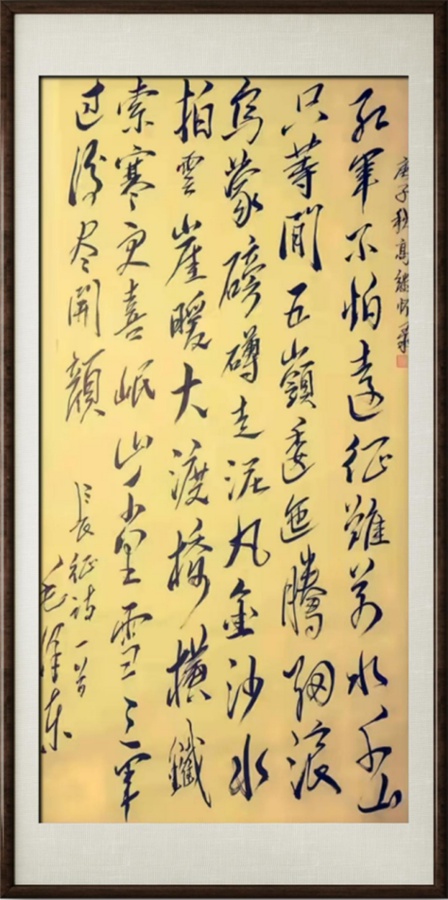 庚子秋高
红軍不怕遠征難万水千山
只等閒五嶺逶迤騰细浪
烏蒙磅礴走泥丸金沙水
拍雲崖暖大渡橋横鐵
索寒更喜岷山千里雪三軍
过後尽開顔
長征诗一首
毛泽东